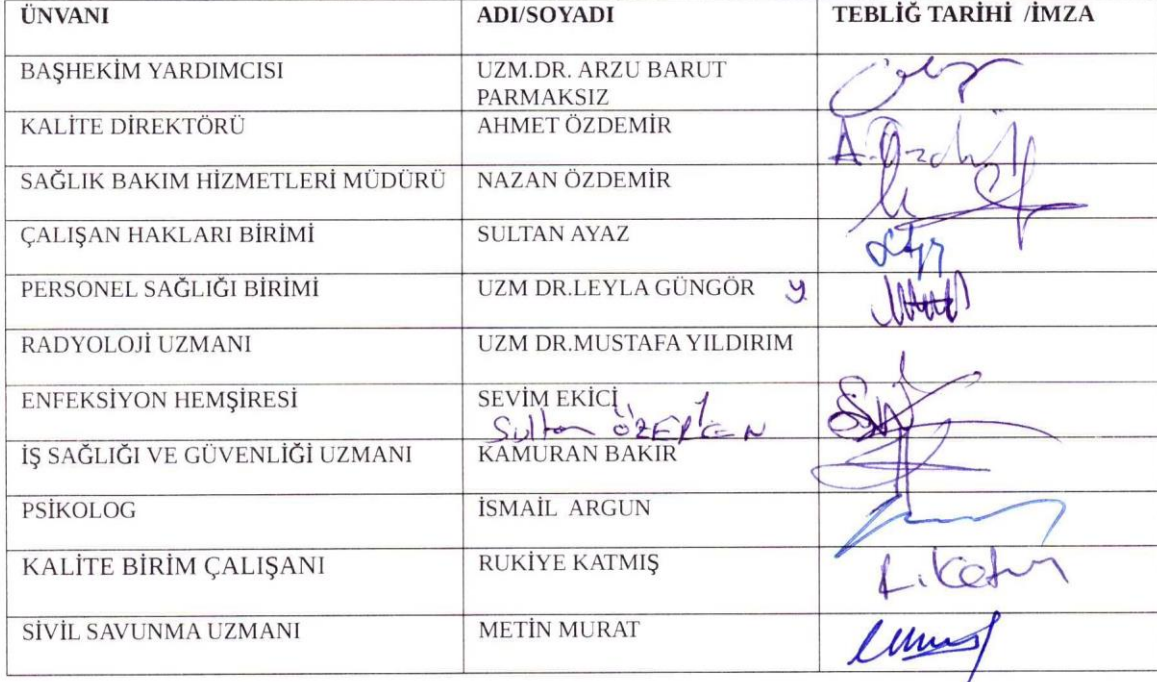 ÜNVANI ADI/SOYADI TEBLİĞ TARİHİ /İMZA
BAŞHEKİM YARDIMCISI UZM.DR. ARZU BARUT
PARMAKSIZ
KALİTE DİREKTÖRÜ AHMET ÖZDEMİR
SAĞLIK BAKIM HİZMETLERİ MÜDÜRÜ NAZAN ÖZDEMİR
ÇALIŞAN HAKLARI BİRİMİ SULTAN AYAZ
PERSONEL SAĞLIĞI BİRİMİ UZM DR.LEYLA GÜNGÖR y.
RADYOLOJİ UZMANI UZM DR.MUSTAFA YILDIRIM
ENFEKSİYON HEMŞİRESİ SEVİM EKİCİ
Sultan
İŞ SAĞLIĞI VE GÜVENLİĞİ UZMANI KAMURAN BAKIR
PSİKOLOG İSMAİL ARGUN
KALİTE BİRİM ÇALIŞANI RUKİYE KATMIŞ
SİVİL SAVUNMA UZMANI METİN MURAT